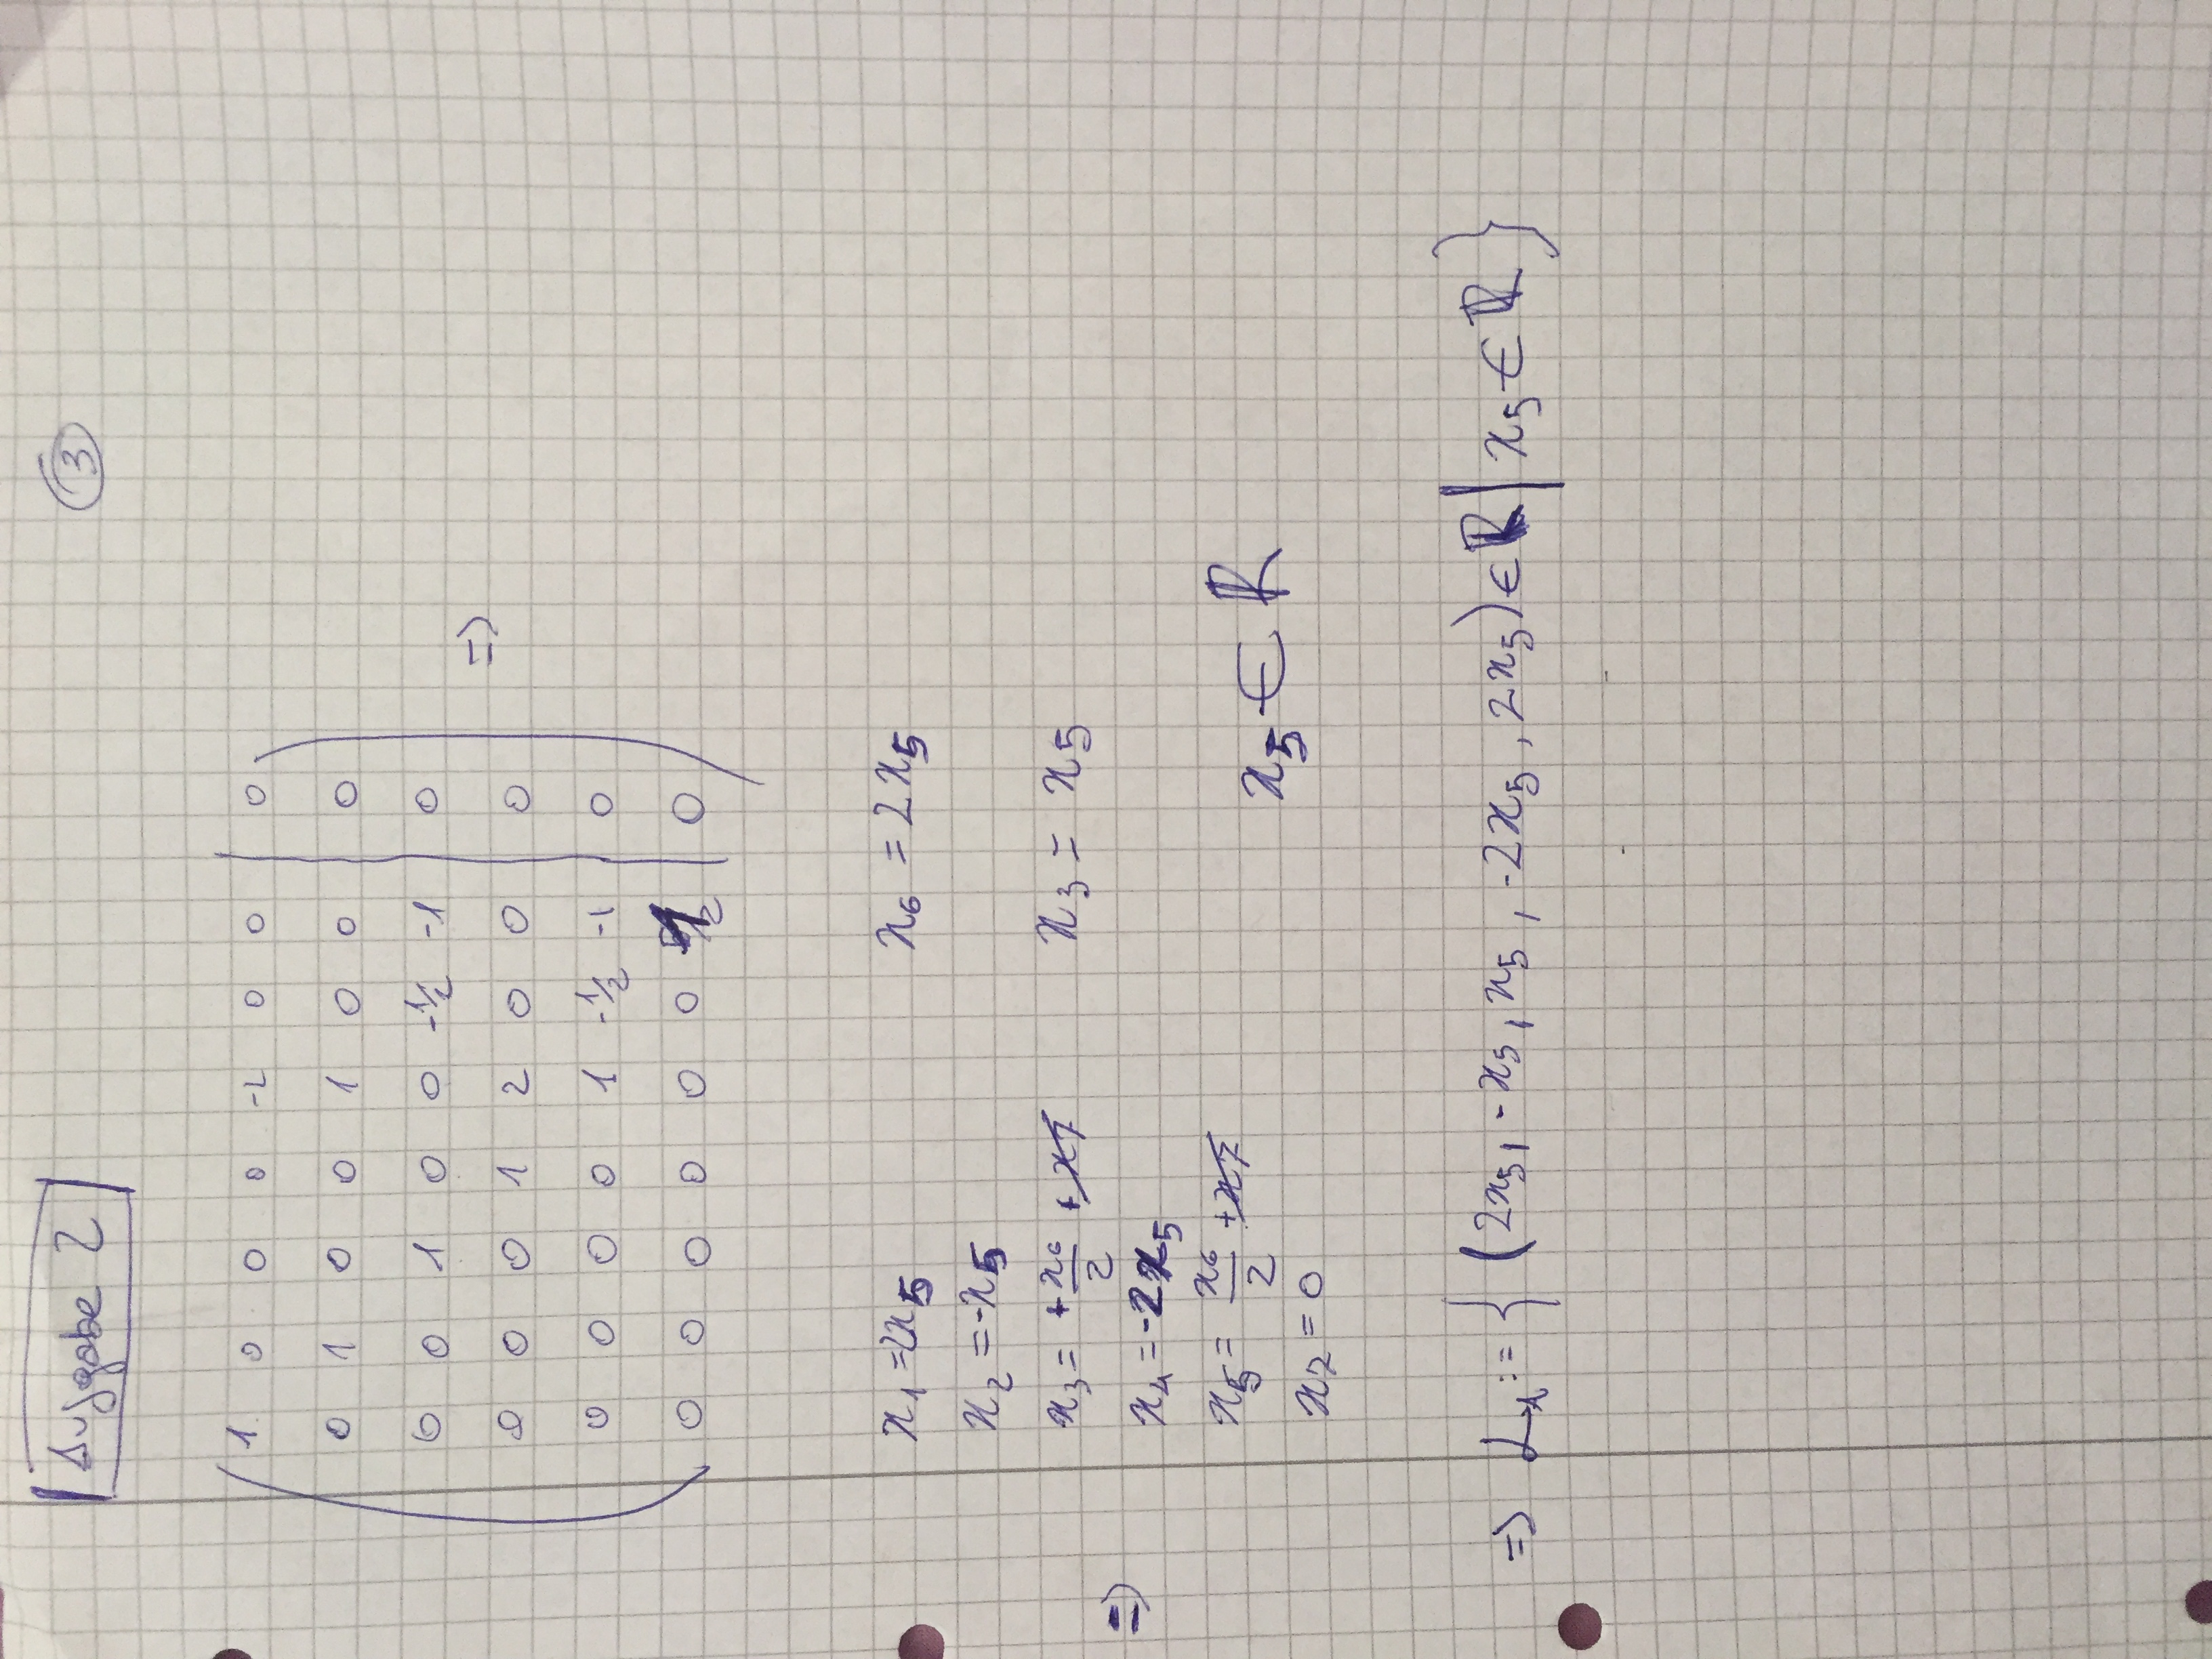 Aufgabe 2 3
1 0 0 0 -2 0 0 | 0
0 1 0 0 1 0 0 | 0
0 0 1 0 0 -1/2 -1 | 0
=>
0 0 0 1 2 0 0 | 0
0 0 0 0 1 -1/2 -1 | 0
0 0 0 0 0 0 1/2 | 0
x1 = 2x5 x6 = 2x5
x2 = -x5
x3 = +x6/2 + x7 x3 = x5
=>
x4 = -2x5
x5 = x6/2 + x7
x5 ∈ ℝ
x7 = 0
=> L1 := { (2x5, -x5, x5, -2x5, 2x5) ∈ ℝ | x5 ∈ ℝ }